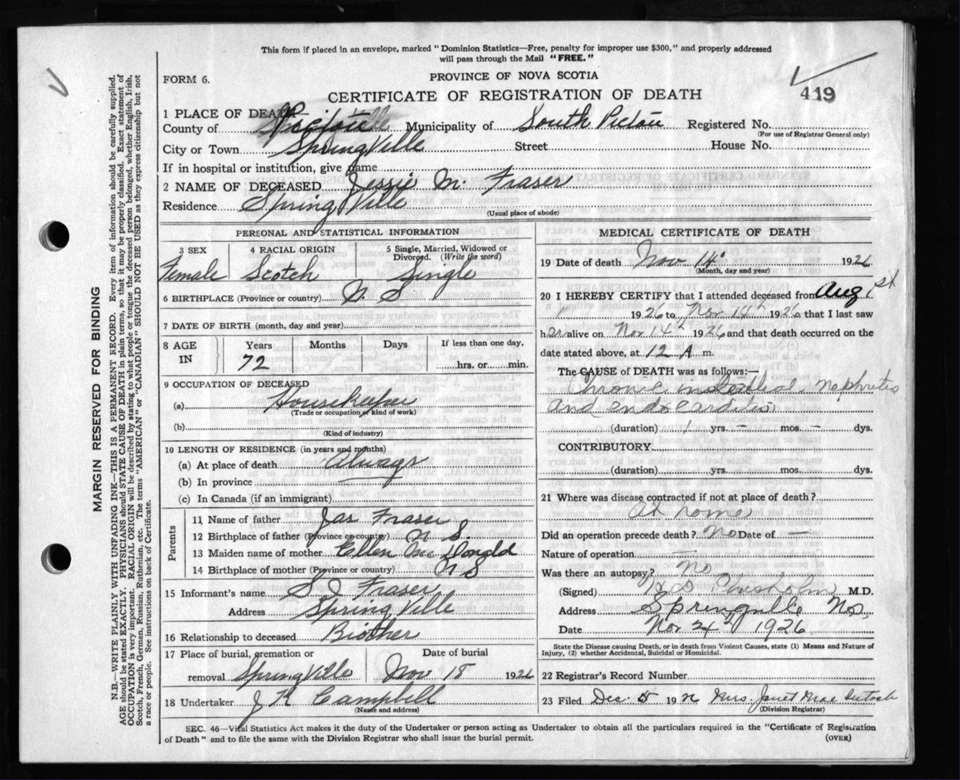 This form if placed in an envelope, marked "Dominion Statistics—Free, penalty for improper use $300," and properly addressed
will pass through the Mail "FREE."
FORM 6.
PROVINCE OF NOVA SCOTIA
CERTIFICATE OF REGISTRATION OF DEATH
419
1 PLACE OF DEATH
County of Pictou Municipality of South Pictou Registered No.
(For use of Registrar General only)
City or Town SpringVille Street House No.
If in hospital or institution, give name
2 NAME OF DECEASED Jessie M. Fraser
Residence Spring Ville
(Usual place of abode)
PERSONAL AND STATISTICAL INFORMATION
3 SEX 4 RACIAL ORIGIN 5 Single, Married, Widowed or
Divorced. (Write the word)
Female Scotch Single
6 BIRTHPLACE (Province or country) N. S
7 DATE OF BIRTH (month, day and year)
8 AGE IN Years Months Days If less than one day,
72 hrs. or min.
9 OCCUPATION OF DECEASED
(a) Housekeeper
(Trade or occupation or kind of work)
(b)
(Kind of industry)
10 LENGTH OF RESIDENCE (in years and months)
(a) At place of death Always
(b) In province
(c) In Canada (if an immigrant)
Parents
11 Name of father Jas Fraser
12 Birthplace of father (Province or country) N S
13 Maiden name of mother Ellen McDonald
14 Birthplace of mother (Province or country) N S
15 Informant's name S J Fraser
Address SpringVille
16 Relationship to deceased Brother
17 Place of burial, cremation or Date of burial
removal SpringVille Nov 18 1926
18 Undertaker J K Campbell
(Name and address)
MEDICAL CERTIFICATE OF DEATH
19 Date of death Nov 14 1926
(Month, day and year)
20 I HEREBY CERTIFY that I attended deceased from Aug 1st
1926 to Nov 14th 1926 that I last saw
her alive on Nov 14th 1926 and that death occurred on the
date stated above, at 12 A m.
The CAUSE of DEATH was as follows:—
Chronic Nephritis
and endocarditis
(duration) 1 yrs. — mos. — dys.
CONTRIBUTORY.
(duration) yrs. mos. dys.
21 Where was disease contracted if not at place of death?
At home
Did an operation precede death? No Date of —
Nature of operation —
Was there an autopsy? No
(Signed) Chisholm M.D.
Address Springville NS
Date Nov 24th 1926
State the Disease causing Death, or in death from Violent Causes, state (1) Means and Nature of
Injury, (2) whether Accidental, Suicidal or Homicidal.
22 Registrar's Record Number
23 Filed Dec 5 19 Mrs. Janet
(Division Registrar)
SEC. 46—Vital Statistics Act makes it the duty of the Undertaker or person acting as Undertaker to obtain all the particulars required in the "Certificate of Registration
of Death" and to file the same with the Division Registrar who shall issue the burial permit. (OVER)
MARGIN RESERVED FOR BINDING
N.B.—WRITE PLAINLY WITH UNFADING INK—THIS IS A PERMANENT RECORD. Every item of information should be carefully supplied.
AGE should be stated EXACTLY. PHYSICIANS should STATE CAUSE OF DEATH in plain terms, so that it may be properly classified. Exact statement of
OCCUPATION is very important. RACIAL ORIGIN will be described by stating to what people or tongue the deceased person belonged, whether English, Irish,
Scotch, French, German, Russian, Ruthenian, etc. The terms "AMERICAN" or "CANADIAN" SHOULD NOT BE USED as they express citizenship but not
a race or people. See instructions on back of Certificate.